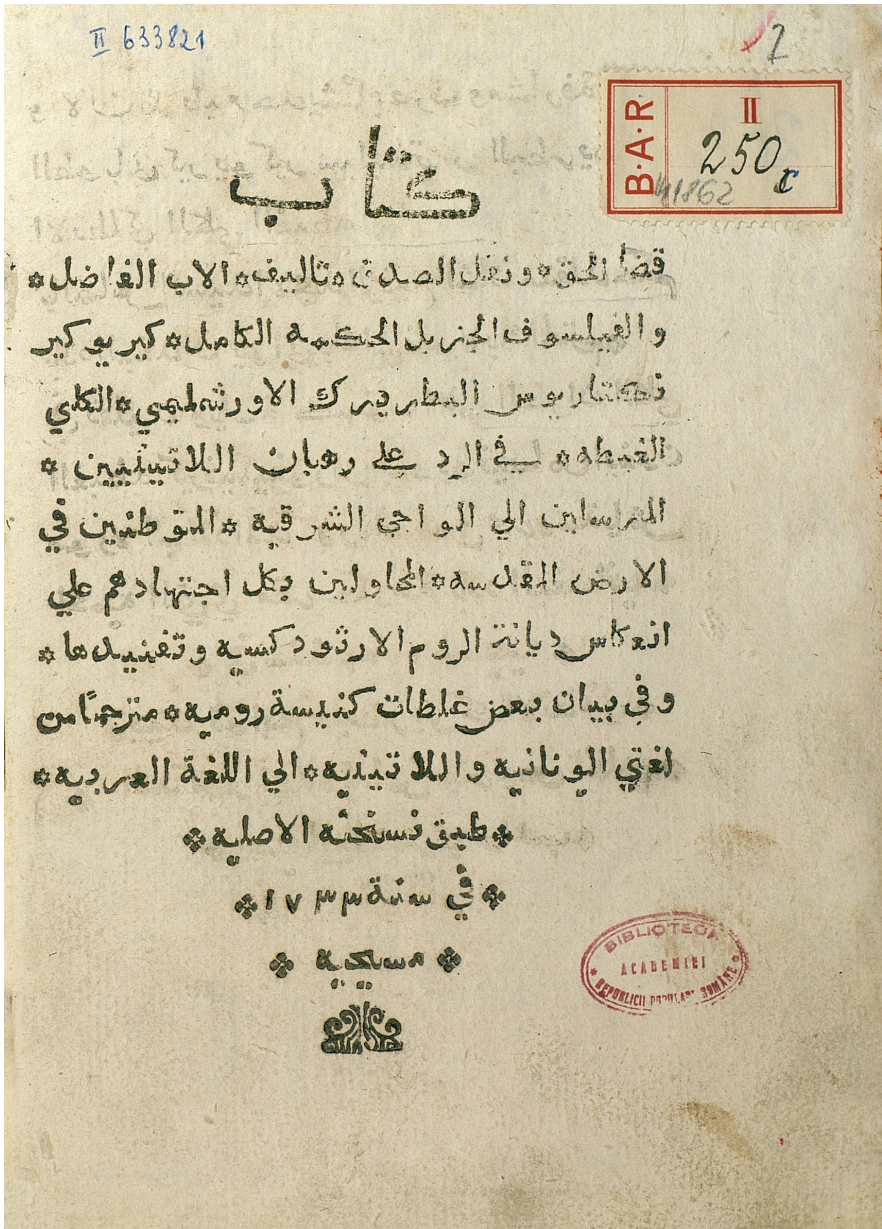 II 633821
2
B.A.R
II
250
c
41862
كتاب
قضا الحق * ونقل الصدق * تاليف * الاب الفاضل *
والفيلسوف الجزيل الحكمه الكامل * كير يو كير
نكتاريوس البطريرك الاورشليمي * الكلي
الغبطه * في الرد علي رهبان اللاتينيين *
المرسلين الي النواحي الشرقيه * المتوطنين في
الارض المقدسه * المحاولين بكل اجتهادهم علي
انعكاس ديانة الروم الارثودكسيه وتفنيدها *
وفي بيان بعض غلطات كنيسة روميه * مترجمًا من
لغتي اليونانيه واللاتينيه * الي اللغة العربيه *
* طبق نسخته الاصليه *
* في سنة ١٧٣٣ *
* مسيحيه *
BIBLIOTECA
ACADEMIEI
REPUBLICII POPULARE ROMÂNE